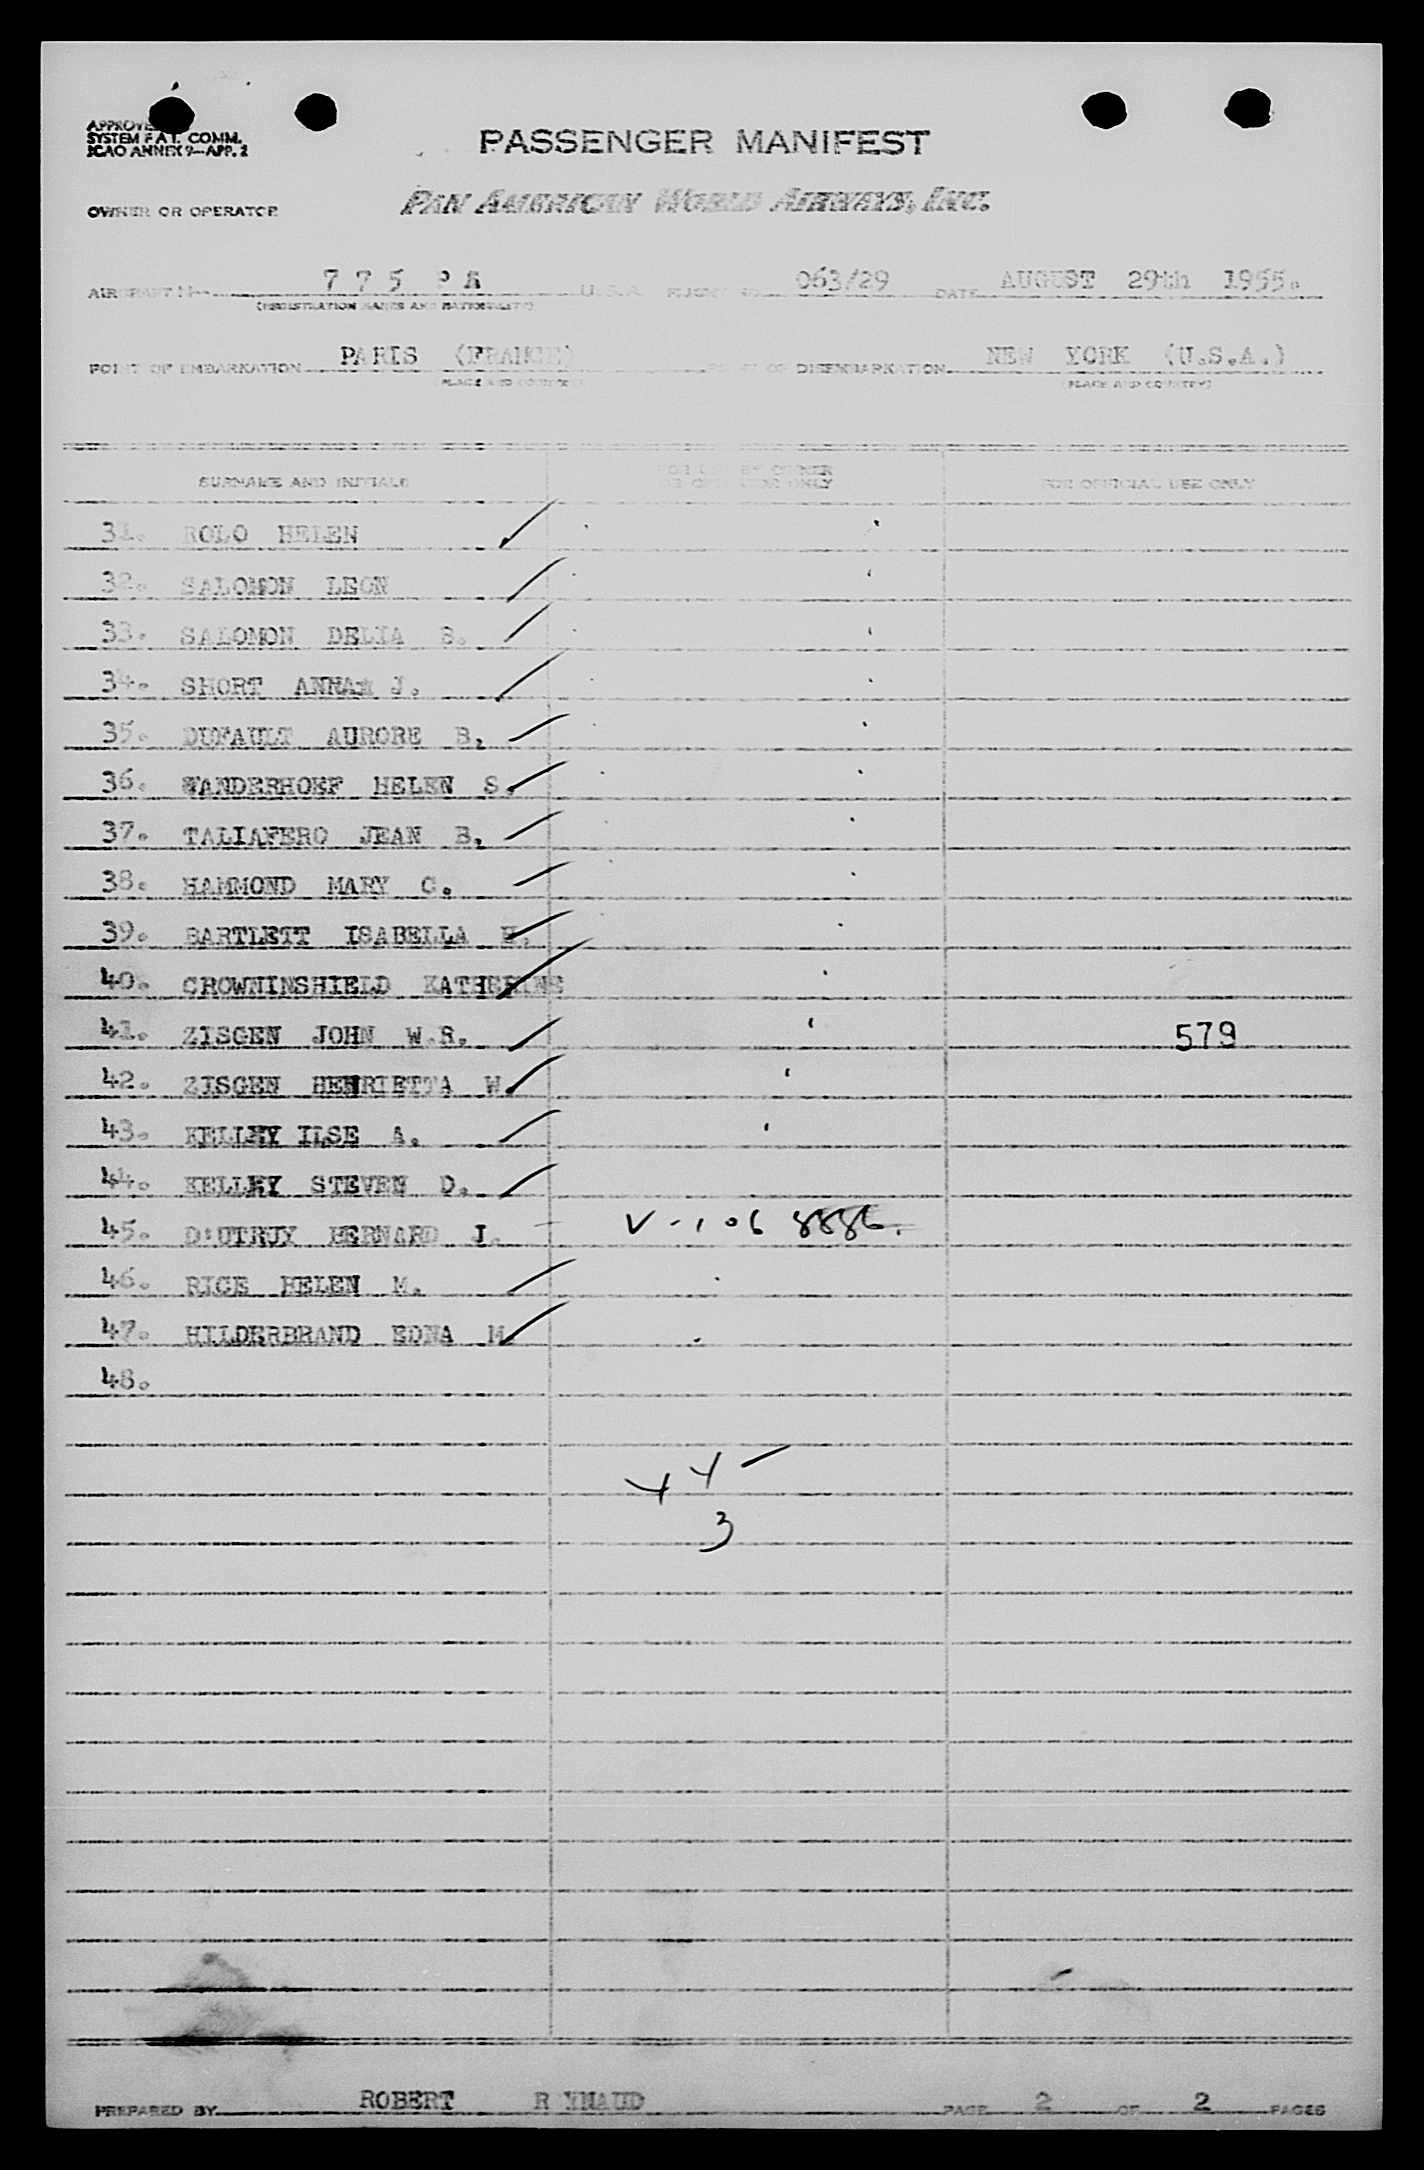 SYSTEM F.A.T. COMM.
ICAO ANNEX 9—APP. 2
PASSENGER MANIFEST
OWNER OR OPERATOR
PAN AMERICAN WORLD AIRWAYS, INC.
AIRCRAFT 7 7 5 P A U.S.A. 063/29 DATE AUGUST 29th 1955.
(REGISTRATION MARKS AND NATIONALITY)
POINT OF EMBARKATION PARIS (FRANCE) POINT OF DISEMBARKATION NEW YORK (U.S.A.)
(PLACE AND COUNTRY) (PLACE AND COUNTRY)
SURNAME AND INITIALS FOR USE BY OWNER OR OPERATOR ONLY FOR OFFICIAL USE ONLY
31. ROLO HELEN
32. SALOMON LEON
33. SALOMON DELIA S.
34. SHORT J.
35. DUFAULT AURORE B.
36. VANDERHOEF HELEN S.
37. TALIAFERO JEAN B.
38. HAMMOND MARY C.
39. BARTLETT ISABELLA H.
40. CROWNINSHIELD KATHERINE
41. ZISGEN JOHN W.R. 579
42. ZISGEN HENRIETTA W.
43. KELLEY ILSE A.
44. KELLEY STEVEN D.
45. D'UTRUY BERNARD J. V-106 8886.
46. RICE HELEN M.
47. HILDERBRAND EDNA M.
48.
44 —
3
PREPARED BY ROBERT R YNAUD PAGE 2 OF 2 PAGES